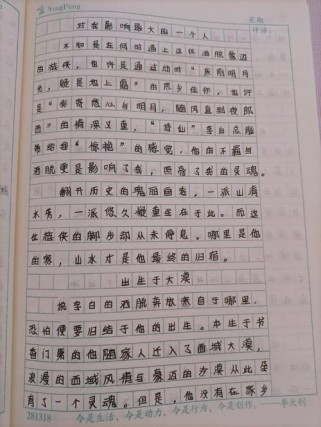 YingFeng
星期
评语:
对我影响最大的一个人
不知是在何时遇上这位洒脱豪迈
的游侠，也许是通过幼时"床前明月
光，疑是地上霜"的思乡佳作，也许
是"我寄愁心与明月，随风直到夜郎
西"的情深义重，"诗仙"李白总能
带给我"惊艳"的感觉，他的不羁与
洒脱更是影响了我，照亮了我的灵魂。
翻开历史的瑰丽画卷，一派山青
水秀，一派悠久凝重在于此。而这
位游侠的脚步却从未停息。哪里是他
的家，山水才是他最终的归宿。
出生于大漠
挑李白的洒脱奔放源自于哪里，
恐怕便要归结于他的出生。本生于书
香门第的他随家人迁入了西域大漠，
浪漫的西域风情与豪迈的沙漠从此孕
育了一个灵魂。但是，他没有在家乡
281318
今是生活，今是动力，今是行为，今是创作。——李大钊